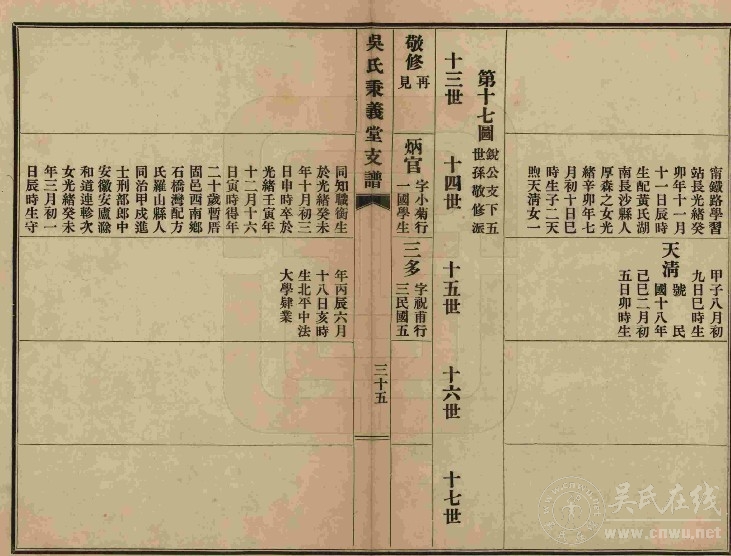 甯鐵路學習
站長光緒癸
卯年十一月
十一日辰時
生配黃氏湖
南長沙縣人
厚森之女光
緒辛卯年七
月初十日巳
時生子二天
煦天淸女一
甲子八月初
九日巳時生
天淸
號民
國十八年
己巳二月初
五日卯時生
第十七圖
銳公支下五
世孫敬修派
十三世
十四世
十五世
十六世
十七世
敬修
再見
炳官
字小菊行
一國學生
三多
字祝甫行
三民國五
吳氏秉義堂支譜
三十五
同知職銜生
於光緒癸未
年十月初三
日申時卒於
光緒壬寅年
十二月十六
日寅時得年
二十歲暫厝
固邑西南鄉
石橋灣配方
氏羅山縣人
同治甲戌進
士刑部郎中
安徽安廬滁
和道連軫次
女光緒癸未
年三月初一
日辰時生守
年丙辰六月
十八日亥時
生北平中法
大學肄業
吳氏在线
www.cnwu.net